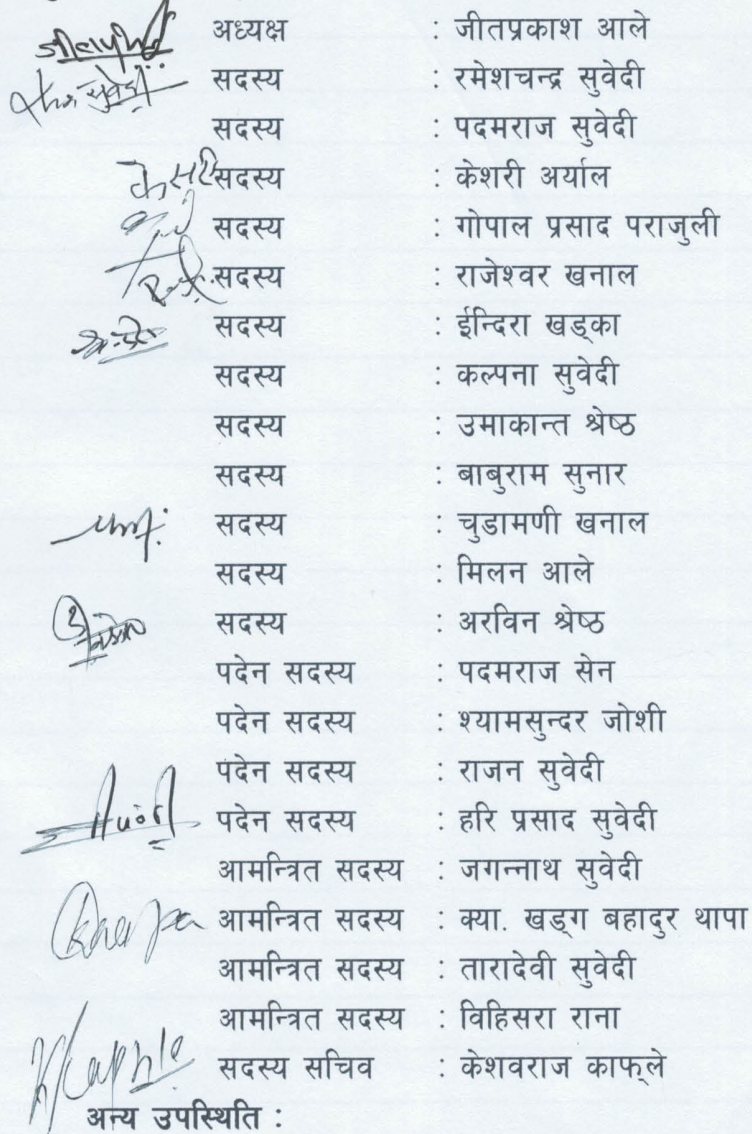 अध्यक्ष : जीतप्रकाश आले
सदस्य : रमेशचन्द्र सुवेदी
सदस्य : पदमराज सुवेदी
सदस्य : केशरी अर्याल
सदस्य : गोपाल प्रसाद पराजुली
सदस्य : राजेश्वर खनाल
सदस्य : ईन्दिरा खड्का
सदस्य : कल्पना सुवेदी
सदस्य : उमाकान्त श्रेष्ठ
सदस्य : बाबुराम सुनार
सदस्य : चुडामणी खनाल
सदस्य : मिलन आले
सदस्य : अरविन श्रेष्ठ
पदेन सदस्य : पदमराज सेन
पदेन सदस्य : श्यामसुन्दर जोशी
पदेन सदस्य : राजन सुवेदी
पदेन सदस्य : हरि प्रसाद सुवेदी
आमन्त्रित सदस्य : जगन्नाथ सुवेदी
आमन्त्रित सदस्य : क्या. खड्ग बहादुर थापा
आमन्त्रित सदस्य : तारादेवी सुवेदी
आमन्त्रित सदस्य : विहिसरा राना
सदस्य सचिव : केशवराज काफ्ले
अन्य उपस्थिति :